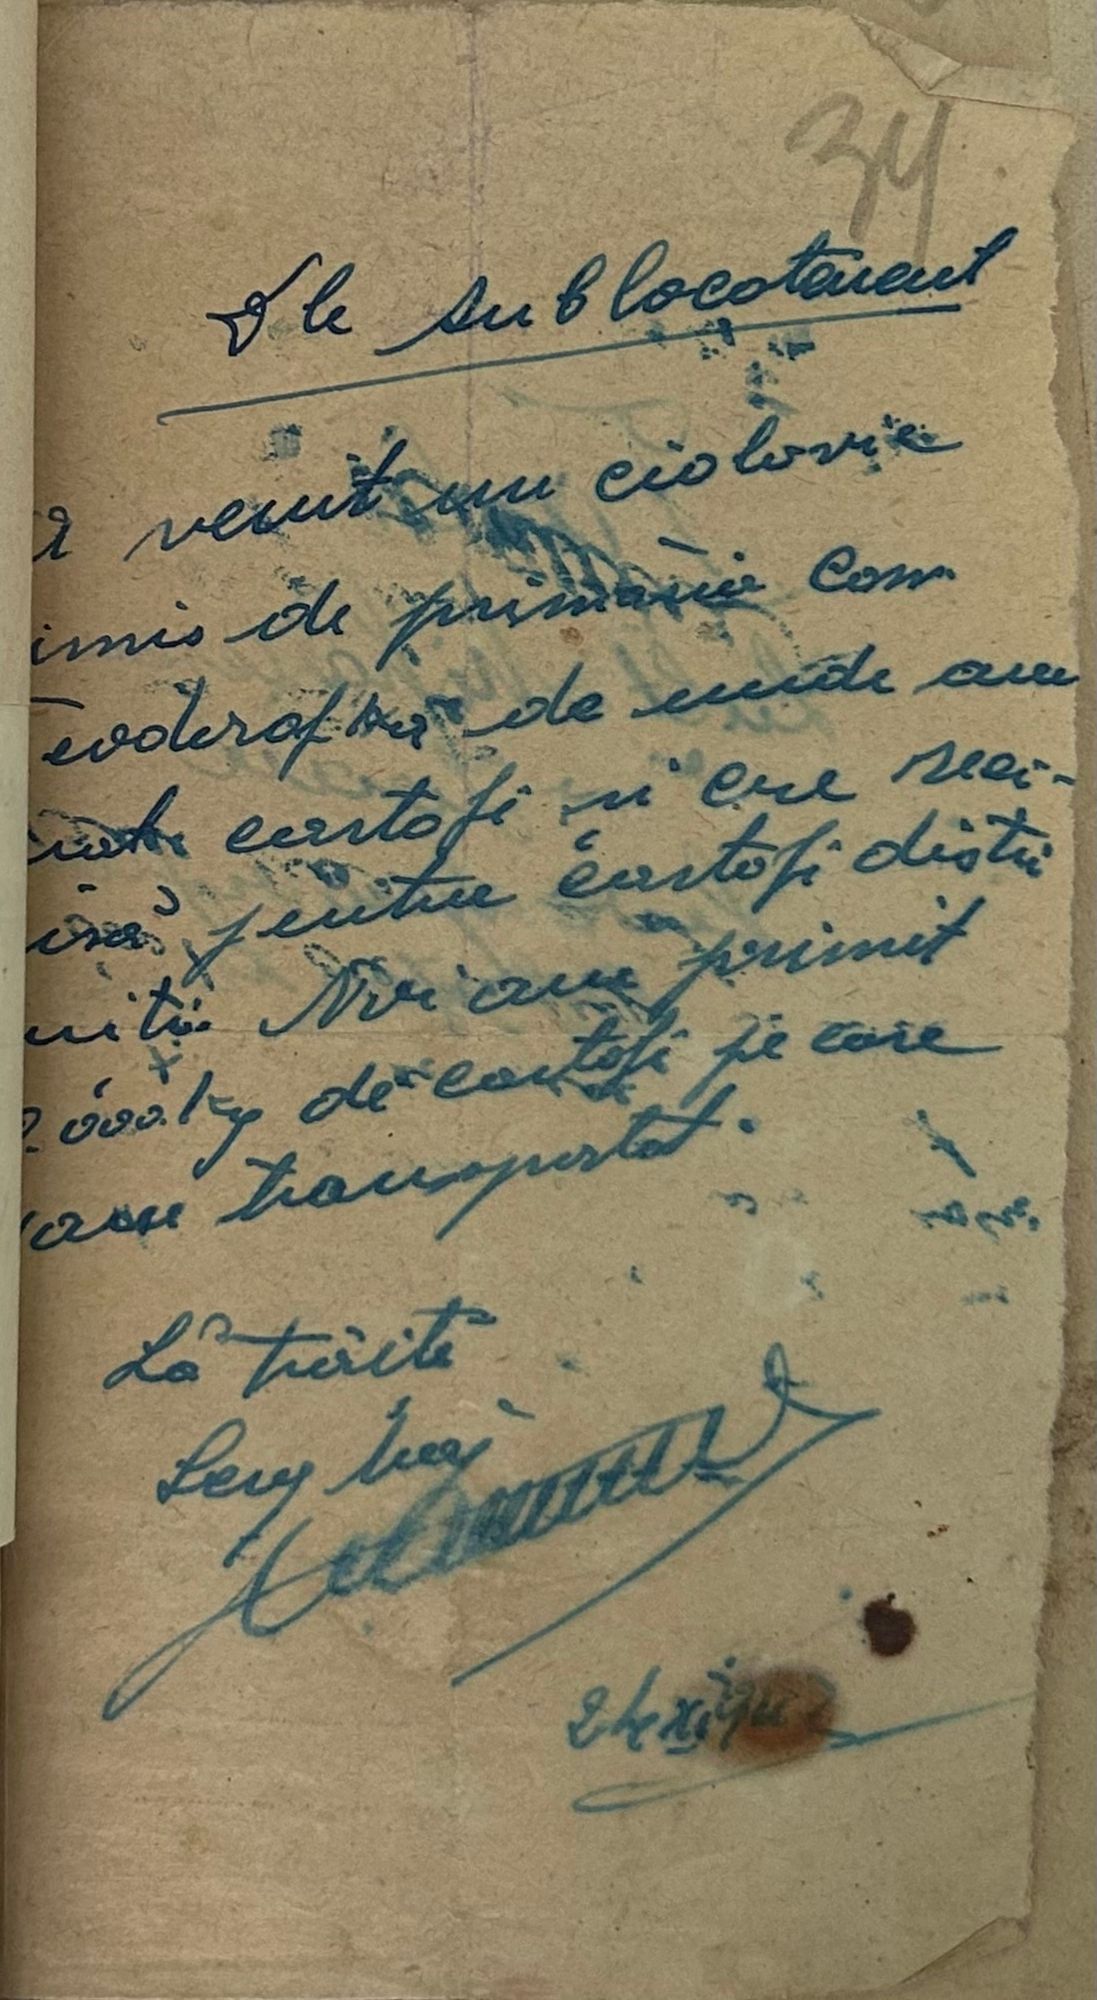 34
Dle sublocotenent
a venit un ciolovic
imis de primăria com
Teodorofka de unde am
cartofi si cere reci-
pisă pentru cartofi distri
uiti. Noi am primit
2.000 kg de cartofi pe care
am transportat.
Să trăiți
Serg Maj
24 XI 942